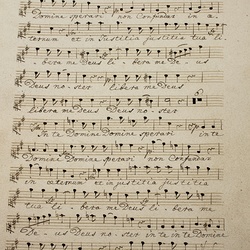 Domine speravi non Confundar in æ-
ternum et in Justitia justitia tua li-
bera me Deus libera me De-us
Deus noster libera me Deus
libera me Deus Deus noster
In te Domine Domine speravi in te
Domine Domine speravi non Confundar
in æternum et in justitia justitia
tua libera me Deus libera me
De-us Deus noster in te in te Domine